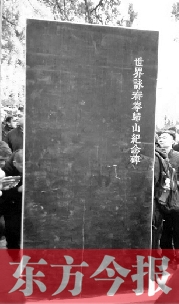 世界詠春拳歸山紀念碑
东方今报